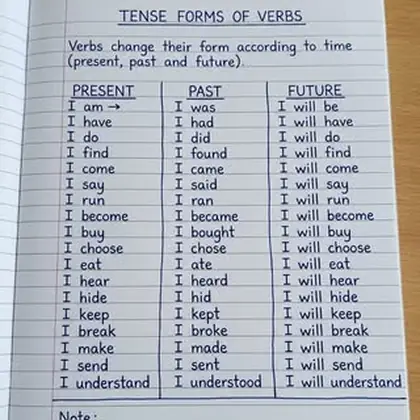 TENSE FORMS OF VERBS
Verbs change their form according to time
(present, past and future).
PRESENT PAST FUTURE
I am → I was I will be
I have I had I will have
I do I did I will do
I find I found I will find
I come I came I will come
I say I said I will say
I run I ran I will run
I become I became I will become
I buy I bought I will buy
I choose I chose I will choose
I eat I ate I will eat
I hear I heard I will hear
I hide I hid I will hide
I keep I kept I will keep
I break I broke I will break
I make I made I will make
I send I sent I will send
I understand I understood I will understand
Note: